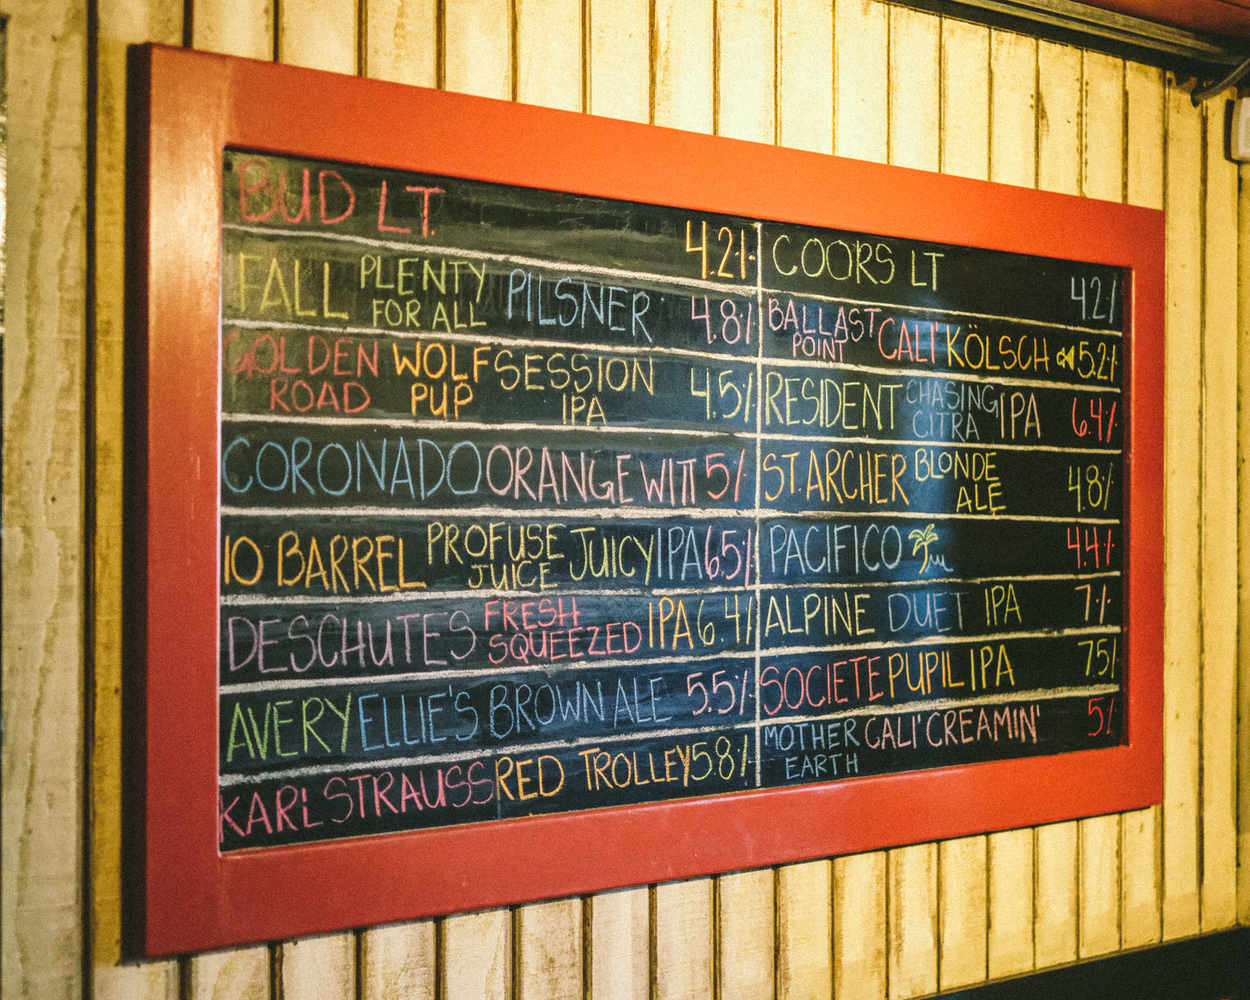 BUD LT. 4.2%
FALL PLENTY FOR ALL PILSNER 4.8%
GOLDEN ROAD WOLF PUP SESSION IPA 4.5%
CORONADO ORANGE WITT 5%
10 BARREL PROFUSE JUICE JUICY IPA 6.5%
DESCHUTES FRESH SQUEEZED IPA 6.4%
AVERY ELLIE'S BROWN ALE 5.5%
KARL STRAUSS RED TROLLEY 5.8%
COORS LT 4.2%
BALLAST POINT CALI' KÖLSCH 5.2%
RESIDENT CHASING CITRA IPA 6.4%
ST. ARCHER BLONDE ALE 4.8%
PACIFICO 4.4%
ALPINE DUET IPA 7%
SOCIETE PUPIL IPA 7.5%
MOTHER EARTH CALI' CREAMIN' 5%